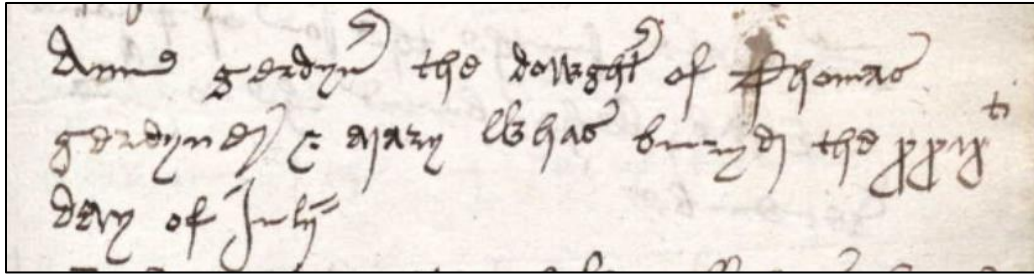 Anne gerdyn the dowght of Thomas
gerdyner & mary Whas buryed the xxix ti
day of July